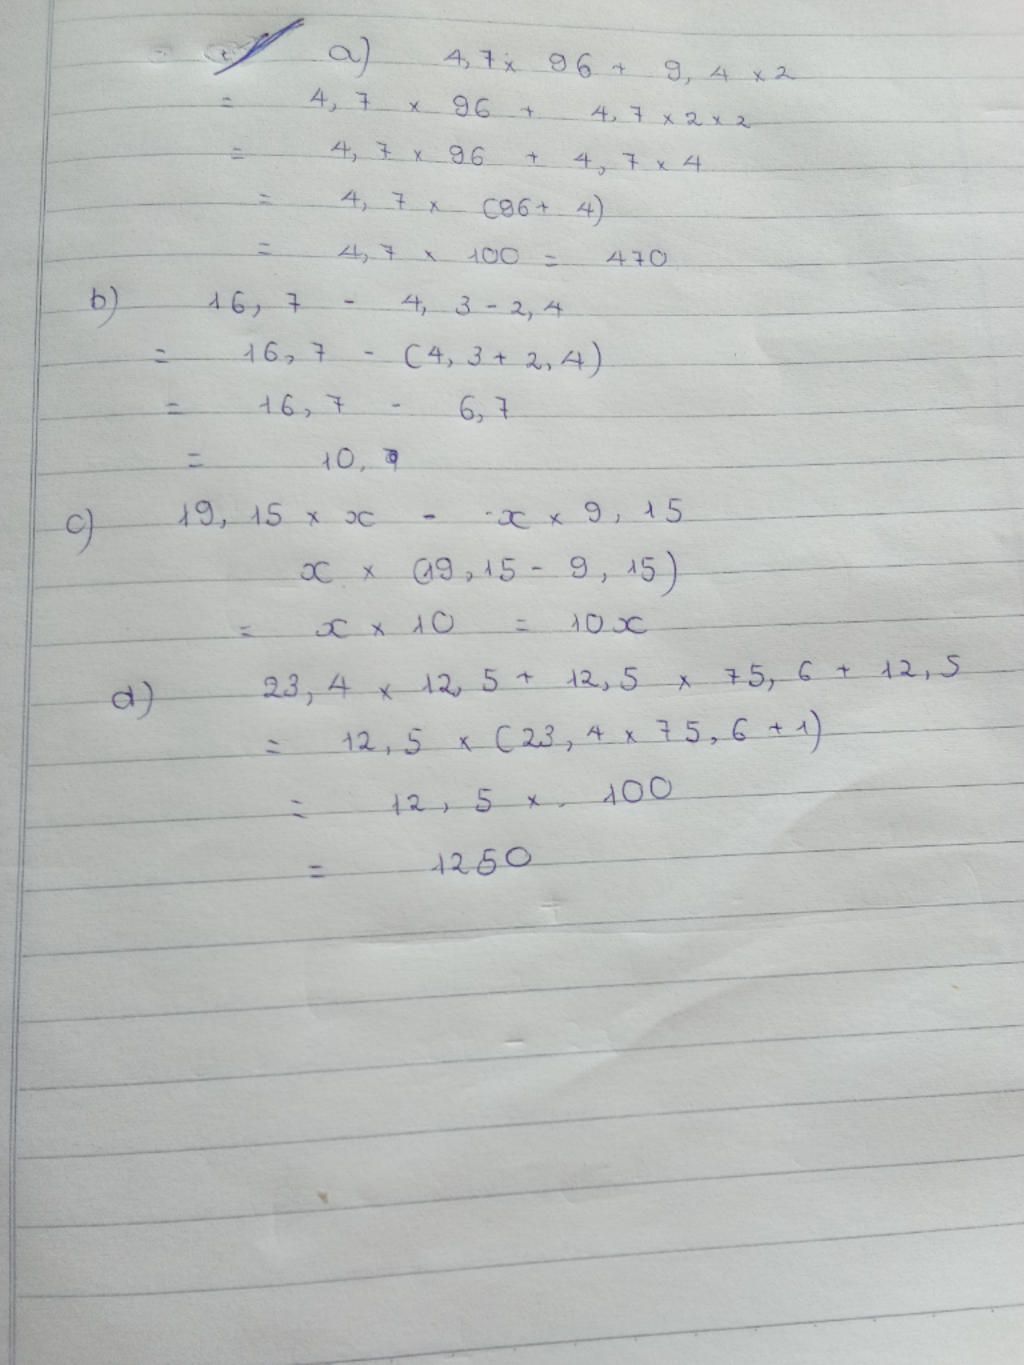 a) 4,7 x 96 + 9,4 x 2
= 4,7 x 96 + 4,7 x 2 x 2
= 4,7 x 96 + 4,7 x 4
= 4,7 x (96 + 4)
= 4,7 x 100 = 470
b) 16,7 - 4,3 - 2,4
= 16,7 - (4,3 + 2,4)
= 16,7 - 6,7
= 10,
c) 19,15 x x - x x 9,15
x x (19,15 - 9,15)
= x x 10 = 10x
d) 23,4 x 12,5 + 12,5 x 75,6 + 12,5
= 12,5 x (23,4 x 75,6 + 1)
= 12,5 x 100
= 1250